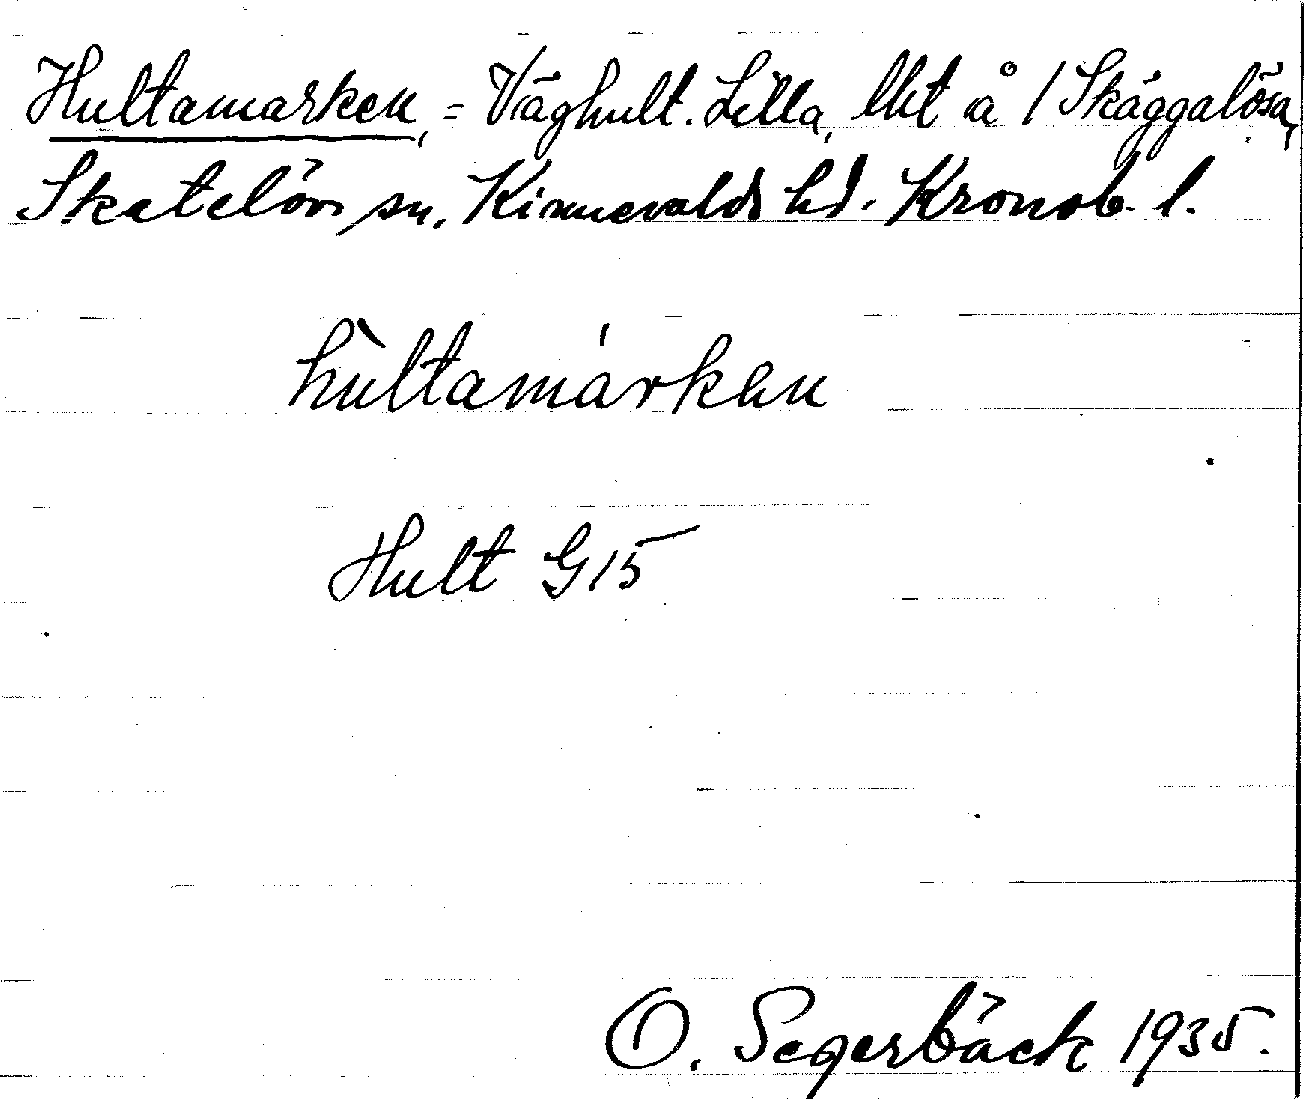 Hultamarken, = Våghult. Lilla, lht å 1 Skäggalösa,
Skatelövs sn. Kinnevalds hd. Kronob. l.
hùltamárkan
Hult G15
O. Segerbäck 1935.